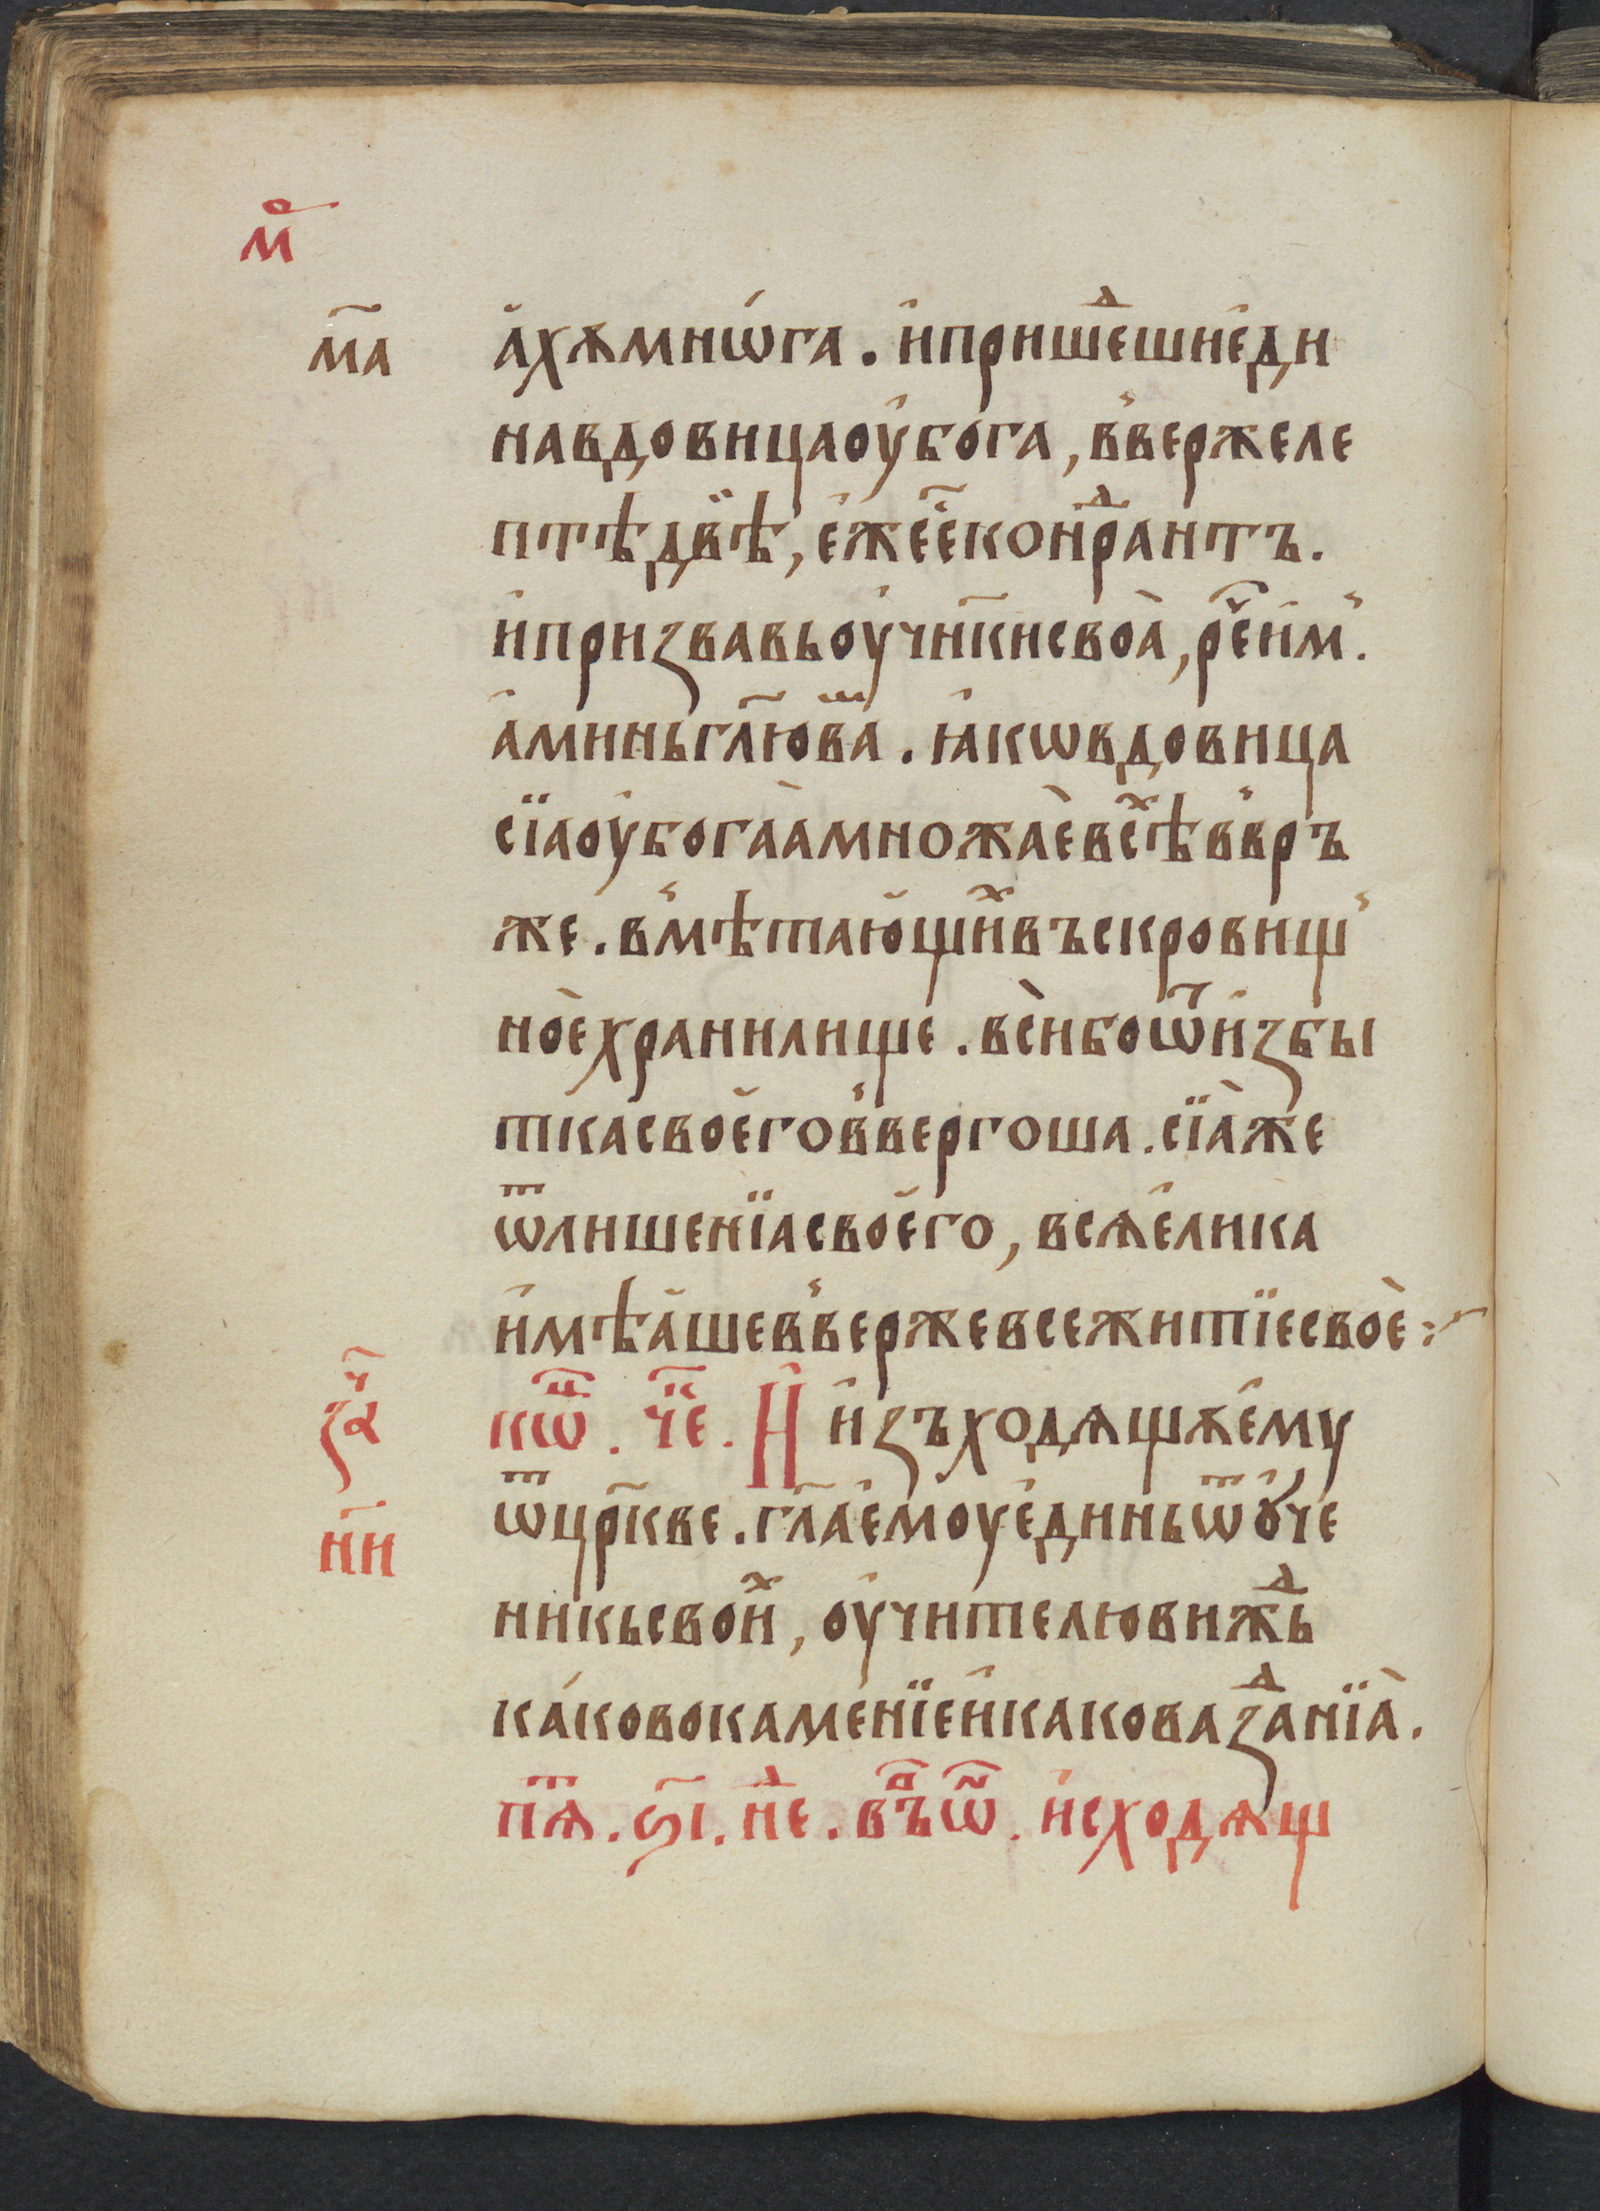 мⷪ҇
м҃а
а҆хѫмнѡ́га. и҆пришеⷣшие҆ди
навдовицаоу҆бо́га, в̾верже́ле
птѣдвѣ̈, е҆же́е҆҃ко́нⷣрантъ.
и҆призвавьоу҆чн҃кисвоа̀, ре҃и҆м̾.
а҆миньгл҃ювⷨа. ꙗ҆́кѡвдовица
сїаоу҆бога̀амножа́ѐвсⷯѣ́в̾връ
же. в̾мѣтаю҆щиⷯвъскровищ̾
но̀ехранилище. всѝбоѿⷡ҇и҆збы
ткасвое҆гов̾вергоша. сїа̀же
ѿлишенїасвое҆го, всѧе҆лика
и҆мѣа҆шев̾вержевсежитїесвоѐ:~
заⷱ҇
н҃и
кѡⷩ҇ц. чеⷦ҇. И҆ и҆зъходѧщѧе҆мꙋ
ѿцр҃кве. гл҃ае҆моуе҆диньѿоу҆че
никьсвоиⷯ, оу҆чителювижⷣь
ка́ковокаме́нїеи҆каковазⷣанїа̀.
пѧⷮ. ѕ҃і. неⷣ. въⷫ҇ѿ. и҆сходѧщ